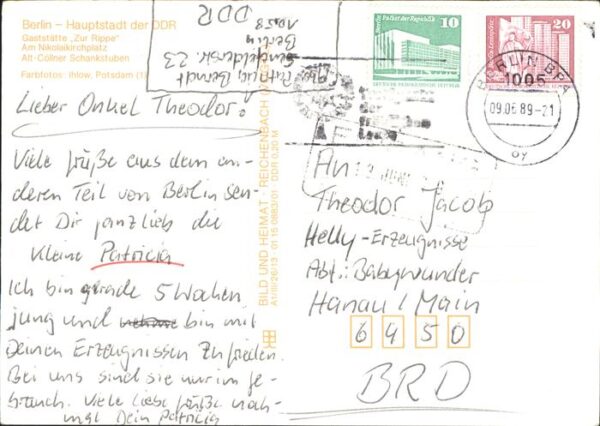 Berlin – Hauptstadt der DDR
Gaststätte "Zur Rippe"
Am Nikolaikirchplatz
Alt-Cöllner Schankstuben
Farbfotos: Ihlow, Potsdam (1)
Abs. Patricia Berndt
23
Berlin
1058
DDR
Lieber Onkel Theodor!
Viele Grüße aus dem an-
deren Teil von Berlin sen-
det Dir ganz lieb die
kleine Patricia
Ich bin gerade 5 Wochen
jung und bin mit
Deinen Erzeugnissen zufrieden.
Bei uns sind sie nur im Ge-
brauch. Viele liebe Grüße noch-
mal Dein Patricia
BILD UND HEIMAT REICHENBACH
DDR 0,20 M
10
20
BERLIN BPA
1005
09.06.89-21
oy
An
Theodor Jacob
Helly-Erzeugnisse
Abt.: Babywunder
Hanau / Main
6450
BRD